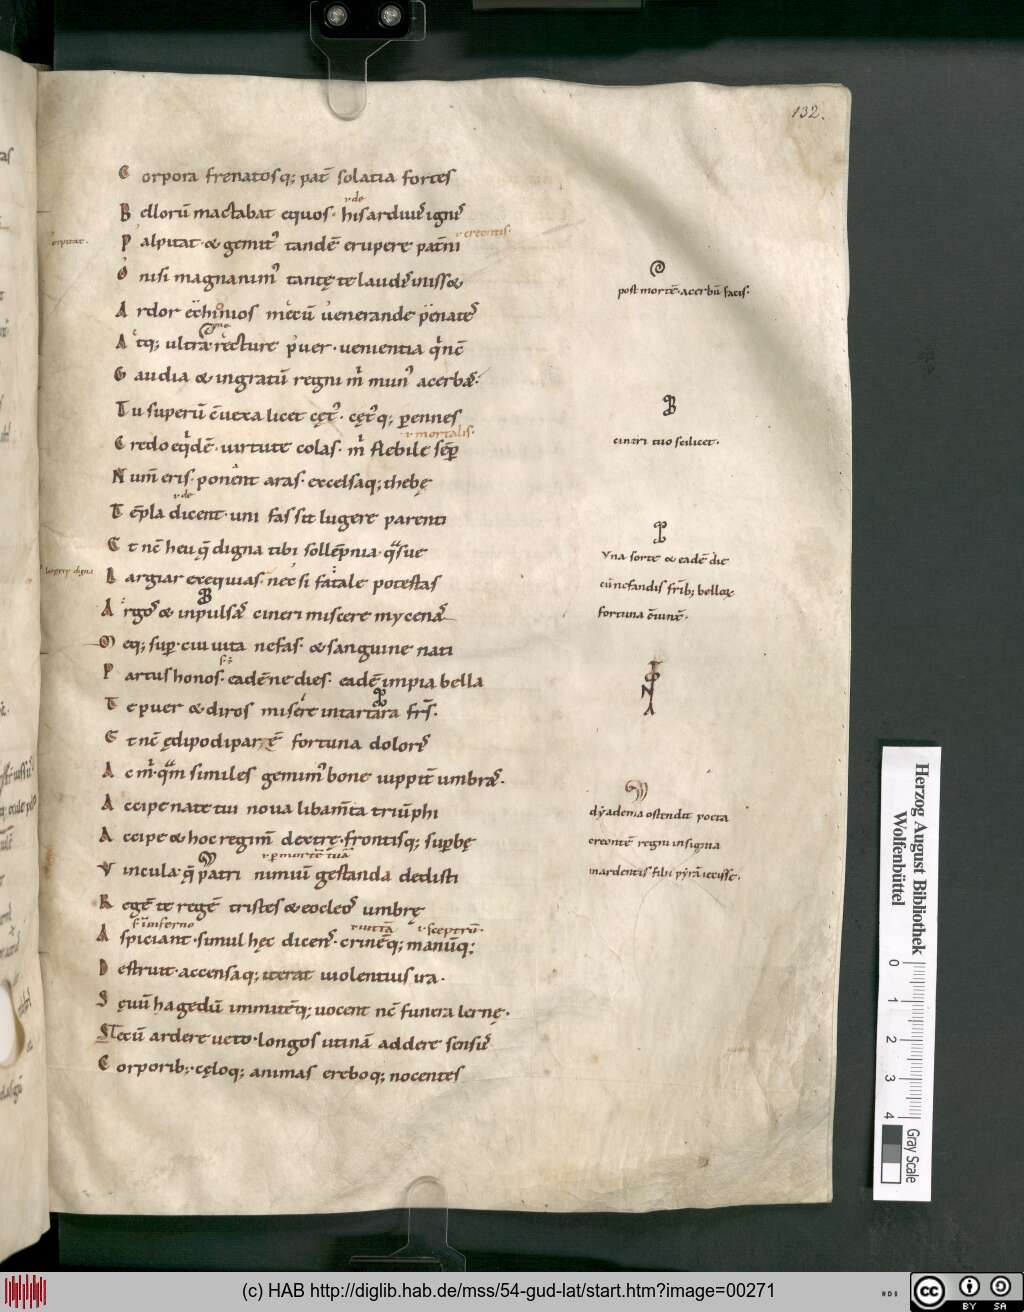 132.
C orpora frenatosq; pat̄ solatia fortes
B ellorū mactabat equos· his ardiuı̄ ignı̄
P alpitat· & gemit᷒ tandē erupere pat̄ni
O nisi magnanim᷒ tantę te laudı̄s inisset
A rdor echinios mecū uenerande penates
A tq; ultra recture puer· uenientia q̄ nc̄
G audia & ingratū regni m̄ mun᷒ acerbas·
T u superū c̄uexa licet cęt᷒· cęt᷒q; ꝑennes
C redo eq̄dē· uirtute colas· m̄ flebile sēꝑ
N um̄ eris· ponent aras· excelsaq; thebę
T ēpla dicent· uni fas sit lugere parenti
E t nc̄ heu q̄ digna tibi sollēpnia· q̄sue
L argiar exequias· nec si fatale potestas
A rgos & inpulsas cineri miscere mycenas
M eq; suꝑ· cui uita nefas· & sanguine nati
P artus honos· eadē ne dies· eadē impia bella
T e puer & diros misere in tartara fr̄s·
E t nc̄ ędipodi par ē fortuna dolorı̄
A c m̄· q̄m similes gemim᷒ bone iuppit̄ umbras·
A ccipe nate tui noua libam̄ta triūphi
A ccipe & hoc regim̄ dextrę· frontisq; suꝑbę
V incula· q̄ patri nimiū gestanda dedisti
R egē te regē tristes & eocleos umbrę
A spiciant· simul hęc dicens· crinēq; manūq:
D estruit· accensaq; iterat uiolentius ira·
S ęuū hagedū immitēq; uocent nc̄ funera lernę·
Tecū ardere ueto· longos utinā addere sensus
C orporib;· cęloq; animas ereboq; nocentes
.i. creontis·
.i. mortalis·
.i. ꝑ mortē tuā
s· in inferno
.i. uittā
.i. sceptrū·
post mortē· acerbū facis·
B
cineri tuo scilicet·
Vna sorte & eadē die
cū nefandis fr̄ib; bellox
fortuna
M
dyadema ostendit poeta
creontē regni insignia
in ardentis filii pyrā iecisse·
Herzog August Bibliothek
Wolfenbüttel
0 1 2 3 4
Gray Scale
(c) HAB http://diglib.hab.de/mss/54-gud-lat/start.htm?image=00271
cc BY SA